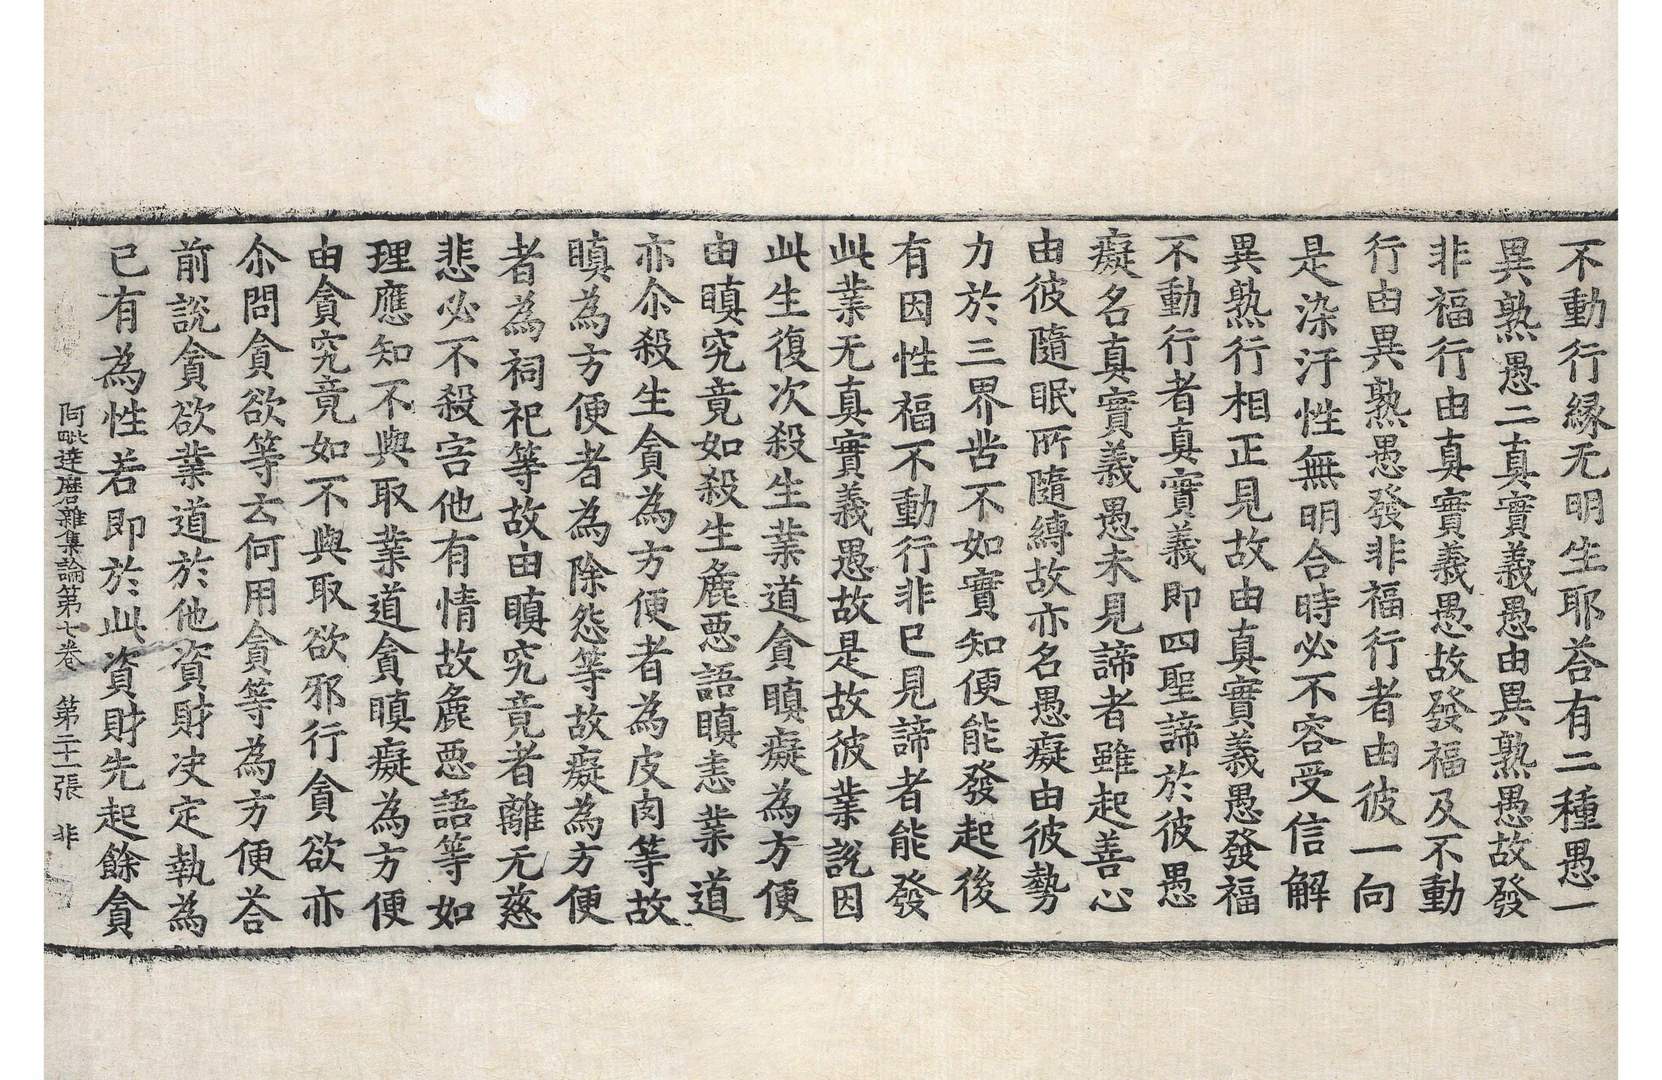 不動行縁无明生耶荅有二種愚一
異熟愚二真實義愚由異熟愚故發
非福行由真實義愚故發福及不動
行由異熟愚發非福行者由彼一向
是染汙性無明合時必不容受信解
異熟行相正見故由真實義愚發福
不動行者真實義即四聖諦於彼愚
癡名真實義愚未見諦者雖起善心
由彼隨眠所隨縛故亦名愚癡由彼勢
力於三界苦不如實知便能發起後
有因性福不動行非已見諦者能發
此業无真實義愚故是故彼業說因
此生復次殺生業道貪瞋癡為方便
由瞋究竟如殺生麁惡語瞋恚業道
亦尒殺生貪為方便者為皮肉等故
瞋為方便者為除怨等故癡為方便
者為祠祀等故由瞋究竟者離无慈
悲必不殺害他有情故麁惡語等如
理應知不與取業道貪瞋癡為方便
由貪究竟如不與取欲邪行貪欲亦
尒問貪欲等云何用貪等為方便荅
前說貪欲業道於他資財决定執為
已有為性若即於此資財先起餘貪
阿毗達磨雜集論第七卷 第二十一張 非